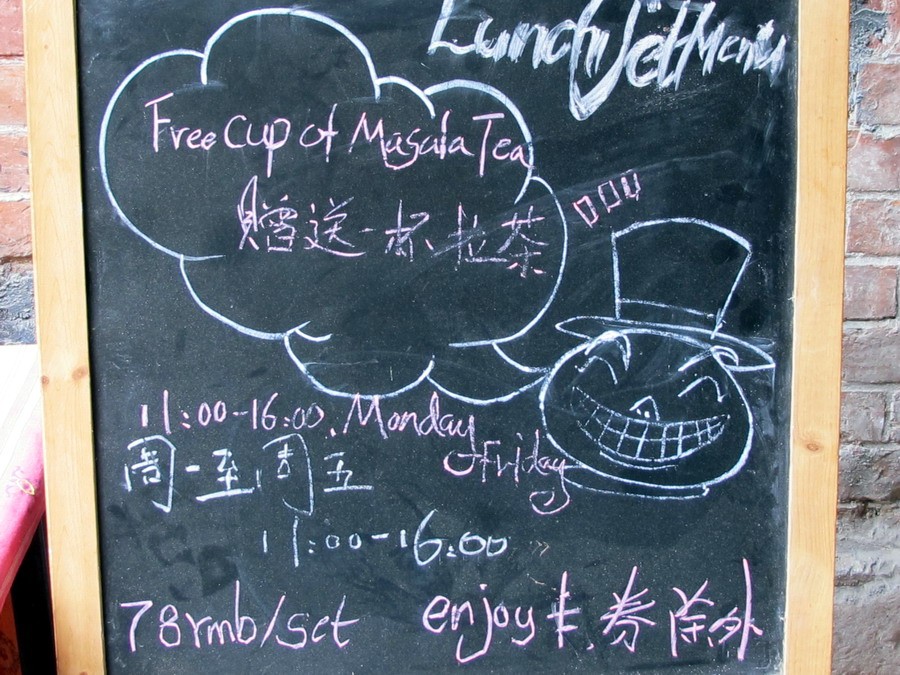 Lunch Set Menu
Free Cup of Masala Tea
赠送一杯拉茶
11:00-16:00. Monday
-Friday
周一至周五
11:00-16:00
78rmb/set enjoy卡.券除外